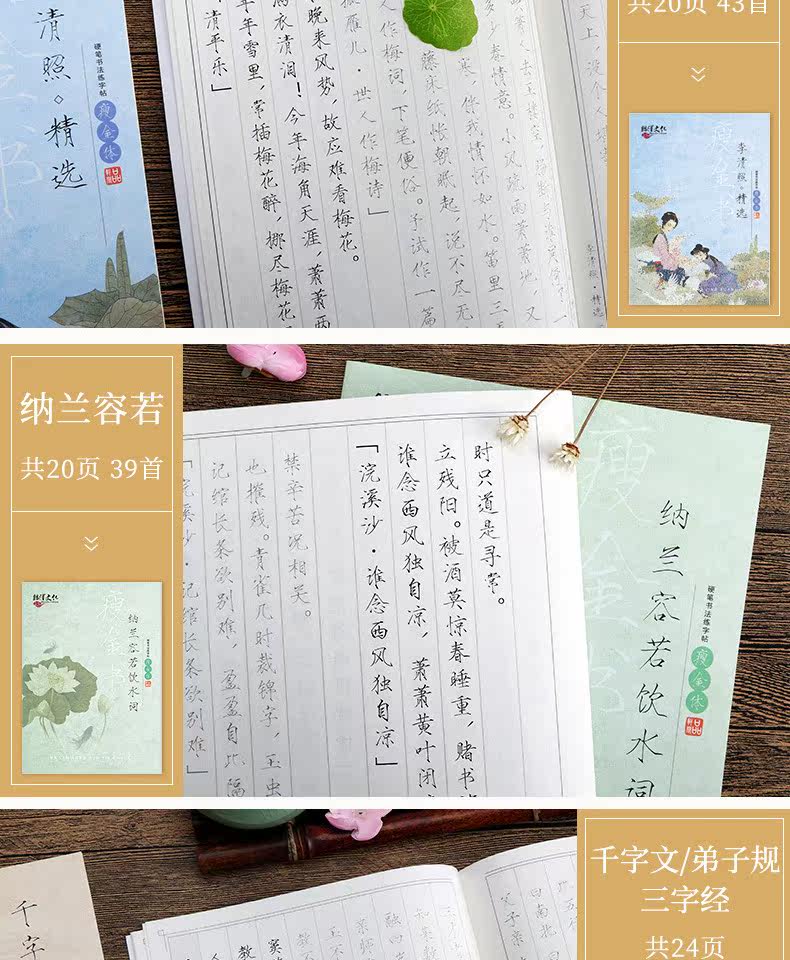 共20页 43首
清照·精选
硬笔书法练字帖
瘦金体
李清照·精选
瘦金书
「清平乐」
年年雪里，常插梅花醉，挪尽梅花
衣清泪！今年海角天涯，萧萧两
晚来风势，故应难看梅花。
雁儿·世人作梅诗」
人作梅词，下笔便俗。予试作一篇
藤床纸帐朝眠起，说不尽无
寒，伴我情怀如水。笛里三
少春情意。小风疏雨萧萧地，又
李清照·精选
纳兰容若
共20页 39首
瘦金书
纳兰容若饮水词
时只道是寻常。
立残阳。被酒莫惊春睡重，赌书
谁念西风独自凉，萧萧黄叶闭
「浣溪沙·谁念西风独自凉」
禁辛苦况相关。
也摧残。青雀几时裁锦字，玉虫
记绾长条欲别难，盈盈自此隔
「浣溪沙·记绾长条欲别难」
瘦金
纳兰容若饮水词
硬笔书法练字帖
瘦金体
千字文/弟子规
三字经
共24页
千字